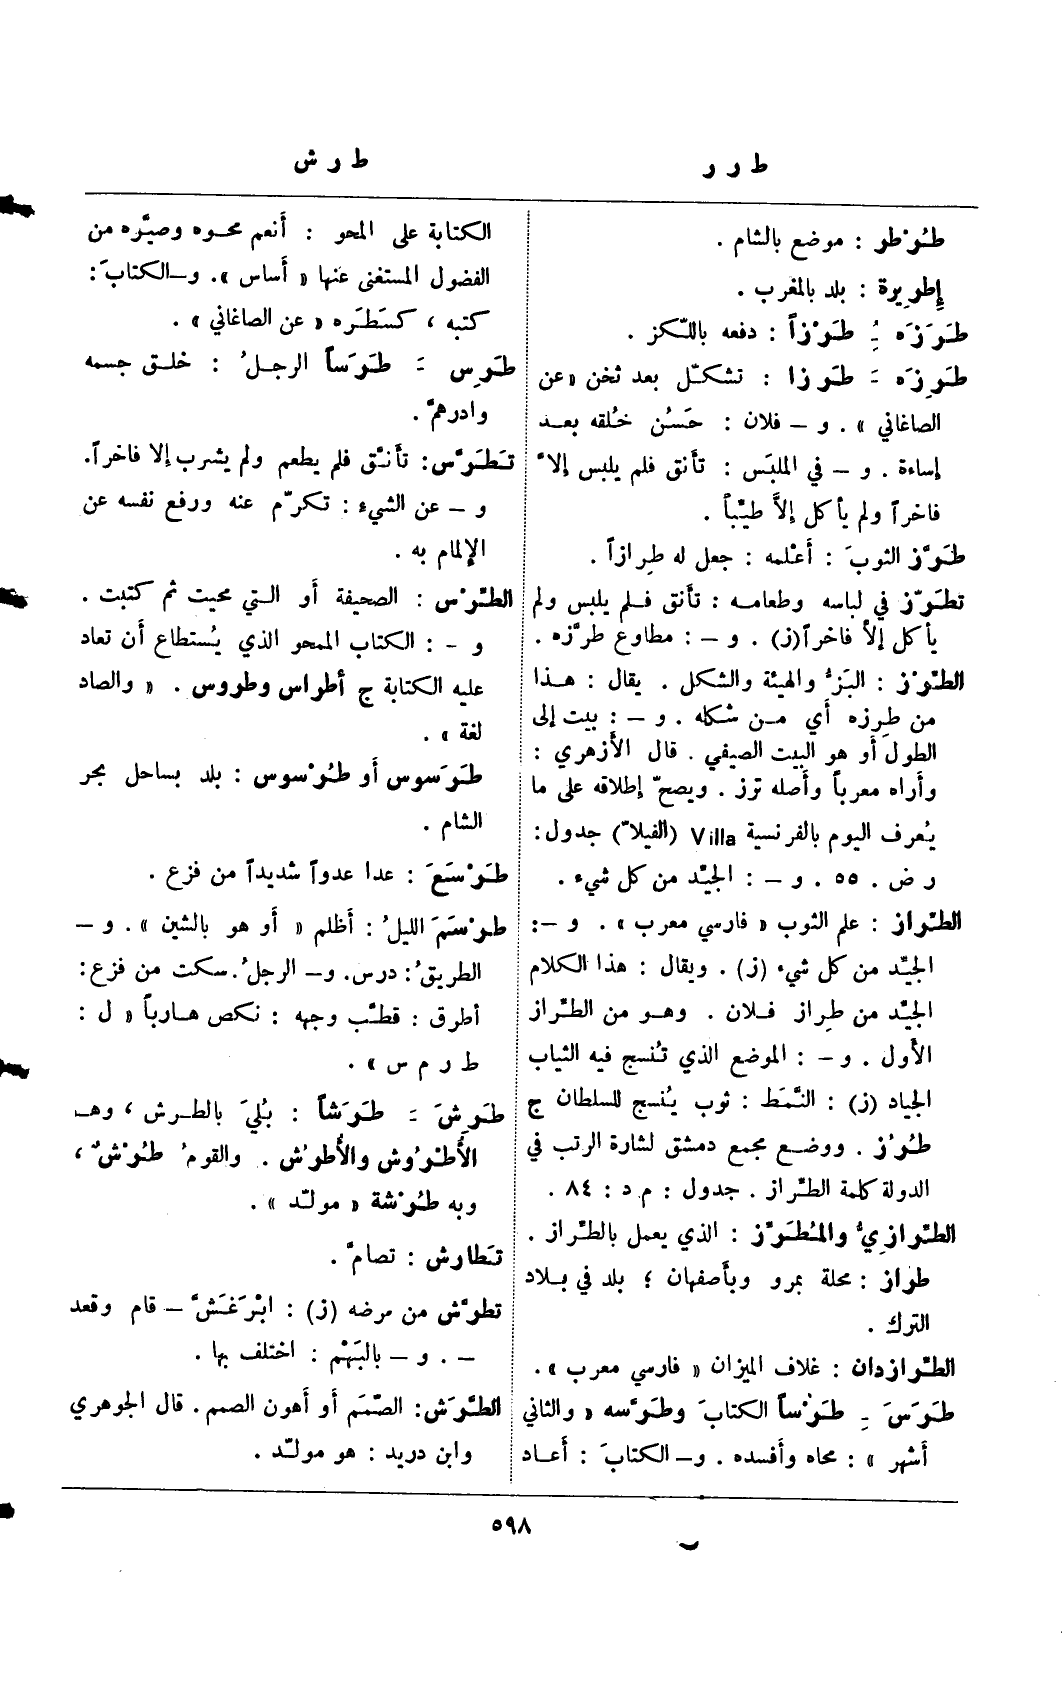 ط ر ر
ط ر ش
طُرْطر : موضع بالشام .
إطريرة : بلد بالمغرب .
طَرَزَه ـُِ طَرْزاً : دفعه باللّكز .
طَرِزَه ـَ طَرزا : تشكّل بعد ثخن «عن
الصاغاني » . و – فلان : حَسُن خُلقه بعد
إساءة . و – في الملبَس : تأنق فلم يلبس إلاّ
فاخراً ولم يأكل إلاَّ طيّباً .
طَرَّز الثوبَ : أعْلمه : جعل له طِرازاً .
تطرّز في لباسه وطعامه : تأنق فلم يلبس ولم
يأكل إلاّ فاخراً(ز) . و – : مطاوع طرّزه .
الطَّرْز : البَزُّ والهيئة والشكل . يقال : هذا
من طِرزه أي من شكله . و – : بيت إلى
الطول أو هو البيت الصيفي . قال الأزهري :
وأراه معرباً وأصله ترز . ويصحّ إطلاقه على ما
يُعرف اليوم بالفرنسية Villa (الفيلاّ) جدول :
ر ض . ٥٥ . و – : الجيّد من كل شيء .
الطّراز : علم الثوب « فارسي معرب » . و –:
الجيّد من كل شيء (ز) . ويقال : هذا الكلام
الجيّد من طِراز فلان . وهو من الطّراز
الأول . و – : الموضع الذي تُنسج فيه الثياب
الجياد (ز) : النَّمَط : ثوب يُنسج للسلطان ج
طُرُز . ووضع مجمع دمشق لشارة الرتب في
الدولة كلمة الطّراز . جدول : م د : ٨٤ .
الطّرازيُّ والمُطَرّز : الذي يعمل بالطّراز .
طراز : محلة بمرو وبأصفهان ؛ بلد في بلاد
الترك .
الطّرازدان : غلاف الميزان « فارسي معرب » .
طَرَسَ ـِ طَرْساً الكتابَ وطَرَّسه « والثاني
أشهر » : محاه وأفسده . و– الكتابَ : أعاد
الكتابة على المحو : أنعم محوه وصيَّره من
الفضول المستغنى عنها « أساس ». و–الكتابَ :
كتبه ، كسَطَره « عن الصاغاني » .
طَرِس ـَ طَرَساً الرجلُ : خلق جسمه
وادرهمّ .
تَطَرَّس: تأنّق فلم يطعم ولم يشرب إلا فاخراً.
و – عن الشيء : تكرّم عنه ورفع نفسه عن
الإلمام به .
الطِّرْس : الصحيفة أو التي محيت ثم كتبت .
و – : الكتاب الممحو الذي يُستطاع أن تعاد
عليه الكتابة ج أطراس وطروس . « والصاد
لغة » .
طَرَسوس أو طُرْسوس : بلد بساحل بحر
الشام .
طَرْسَعَ : عدا عدواً شديداً من فزع .
طرْسَمَ الليلُ : أظلم « أو هو بالشين » . و –
الطريقُ : درس. و– الرجلُ. سكت من فزع :
أطرق : قطّب وجهه : نكص هارباً « ل :
ط ر م س » .
طَرِشَ ـَ طَرَشاً : بُليَ بالطرش ، وهو
الأُطْرُوش والأُطرُش . والقومُ طُرْشٌ ،
وبه طُرْشة « مولّد » .
تَطارش : تصامّ .
تطرّش من مرضه (ز) : ابْرَغَشَّ – قام وقعد
– . و – بالبَهْم : اختلف بها .
الطَّرَش: الصّمَم أو أهون الصمم. قال الجوهري
وابن دريد : هو مولّد .
٥٩٨